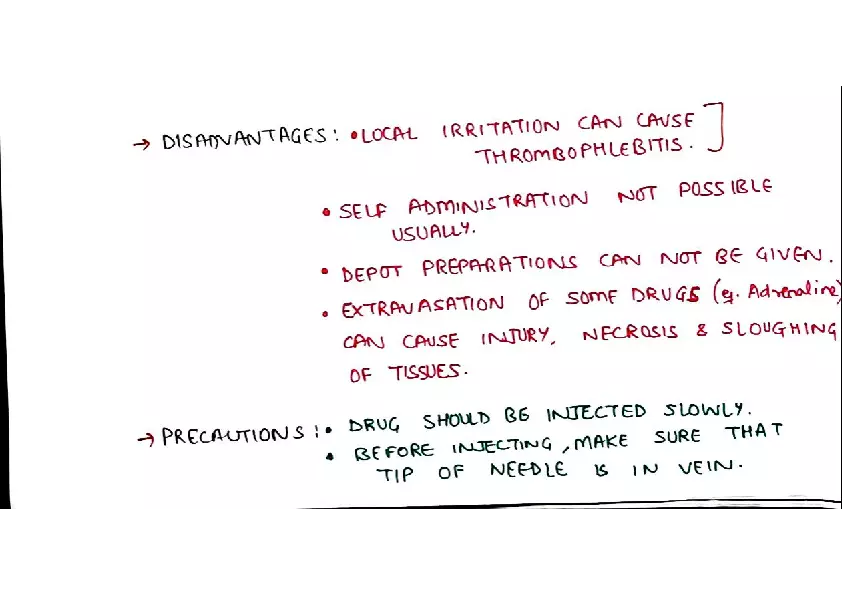 → DISADVANTAGES: • LOCAL IRRITATION CAN CAUSE
THROMBOPHLEBITIS.
• SELF ADMINISTRATION NOT POSSIBLE
USUALLY.
• DEPOT PREPARATIONS CAN NOT BE GIVEN.
• EXTRAVASATION OF SOME DRUGS (eg. Adrenaline)
CAN CAUSE INJURY, NECROSIS & SLOUGHING
OF TISSUES.
→ PRECAUTIONS: • DRUG SHOULD BE INJECTED SLOWLY.
• BEFORE INJECTING, MAKE SURE THAT
TIP OF NEEDLE IS IN VEIN.